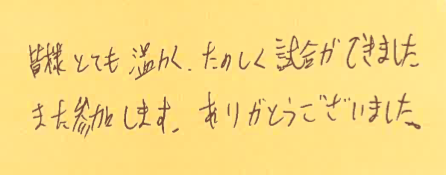 皆様とても温かく、たのしく試合ができました
また参加します。ありがとうございました。